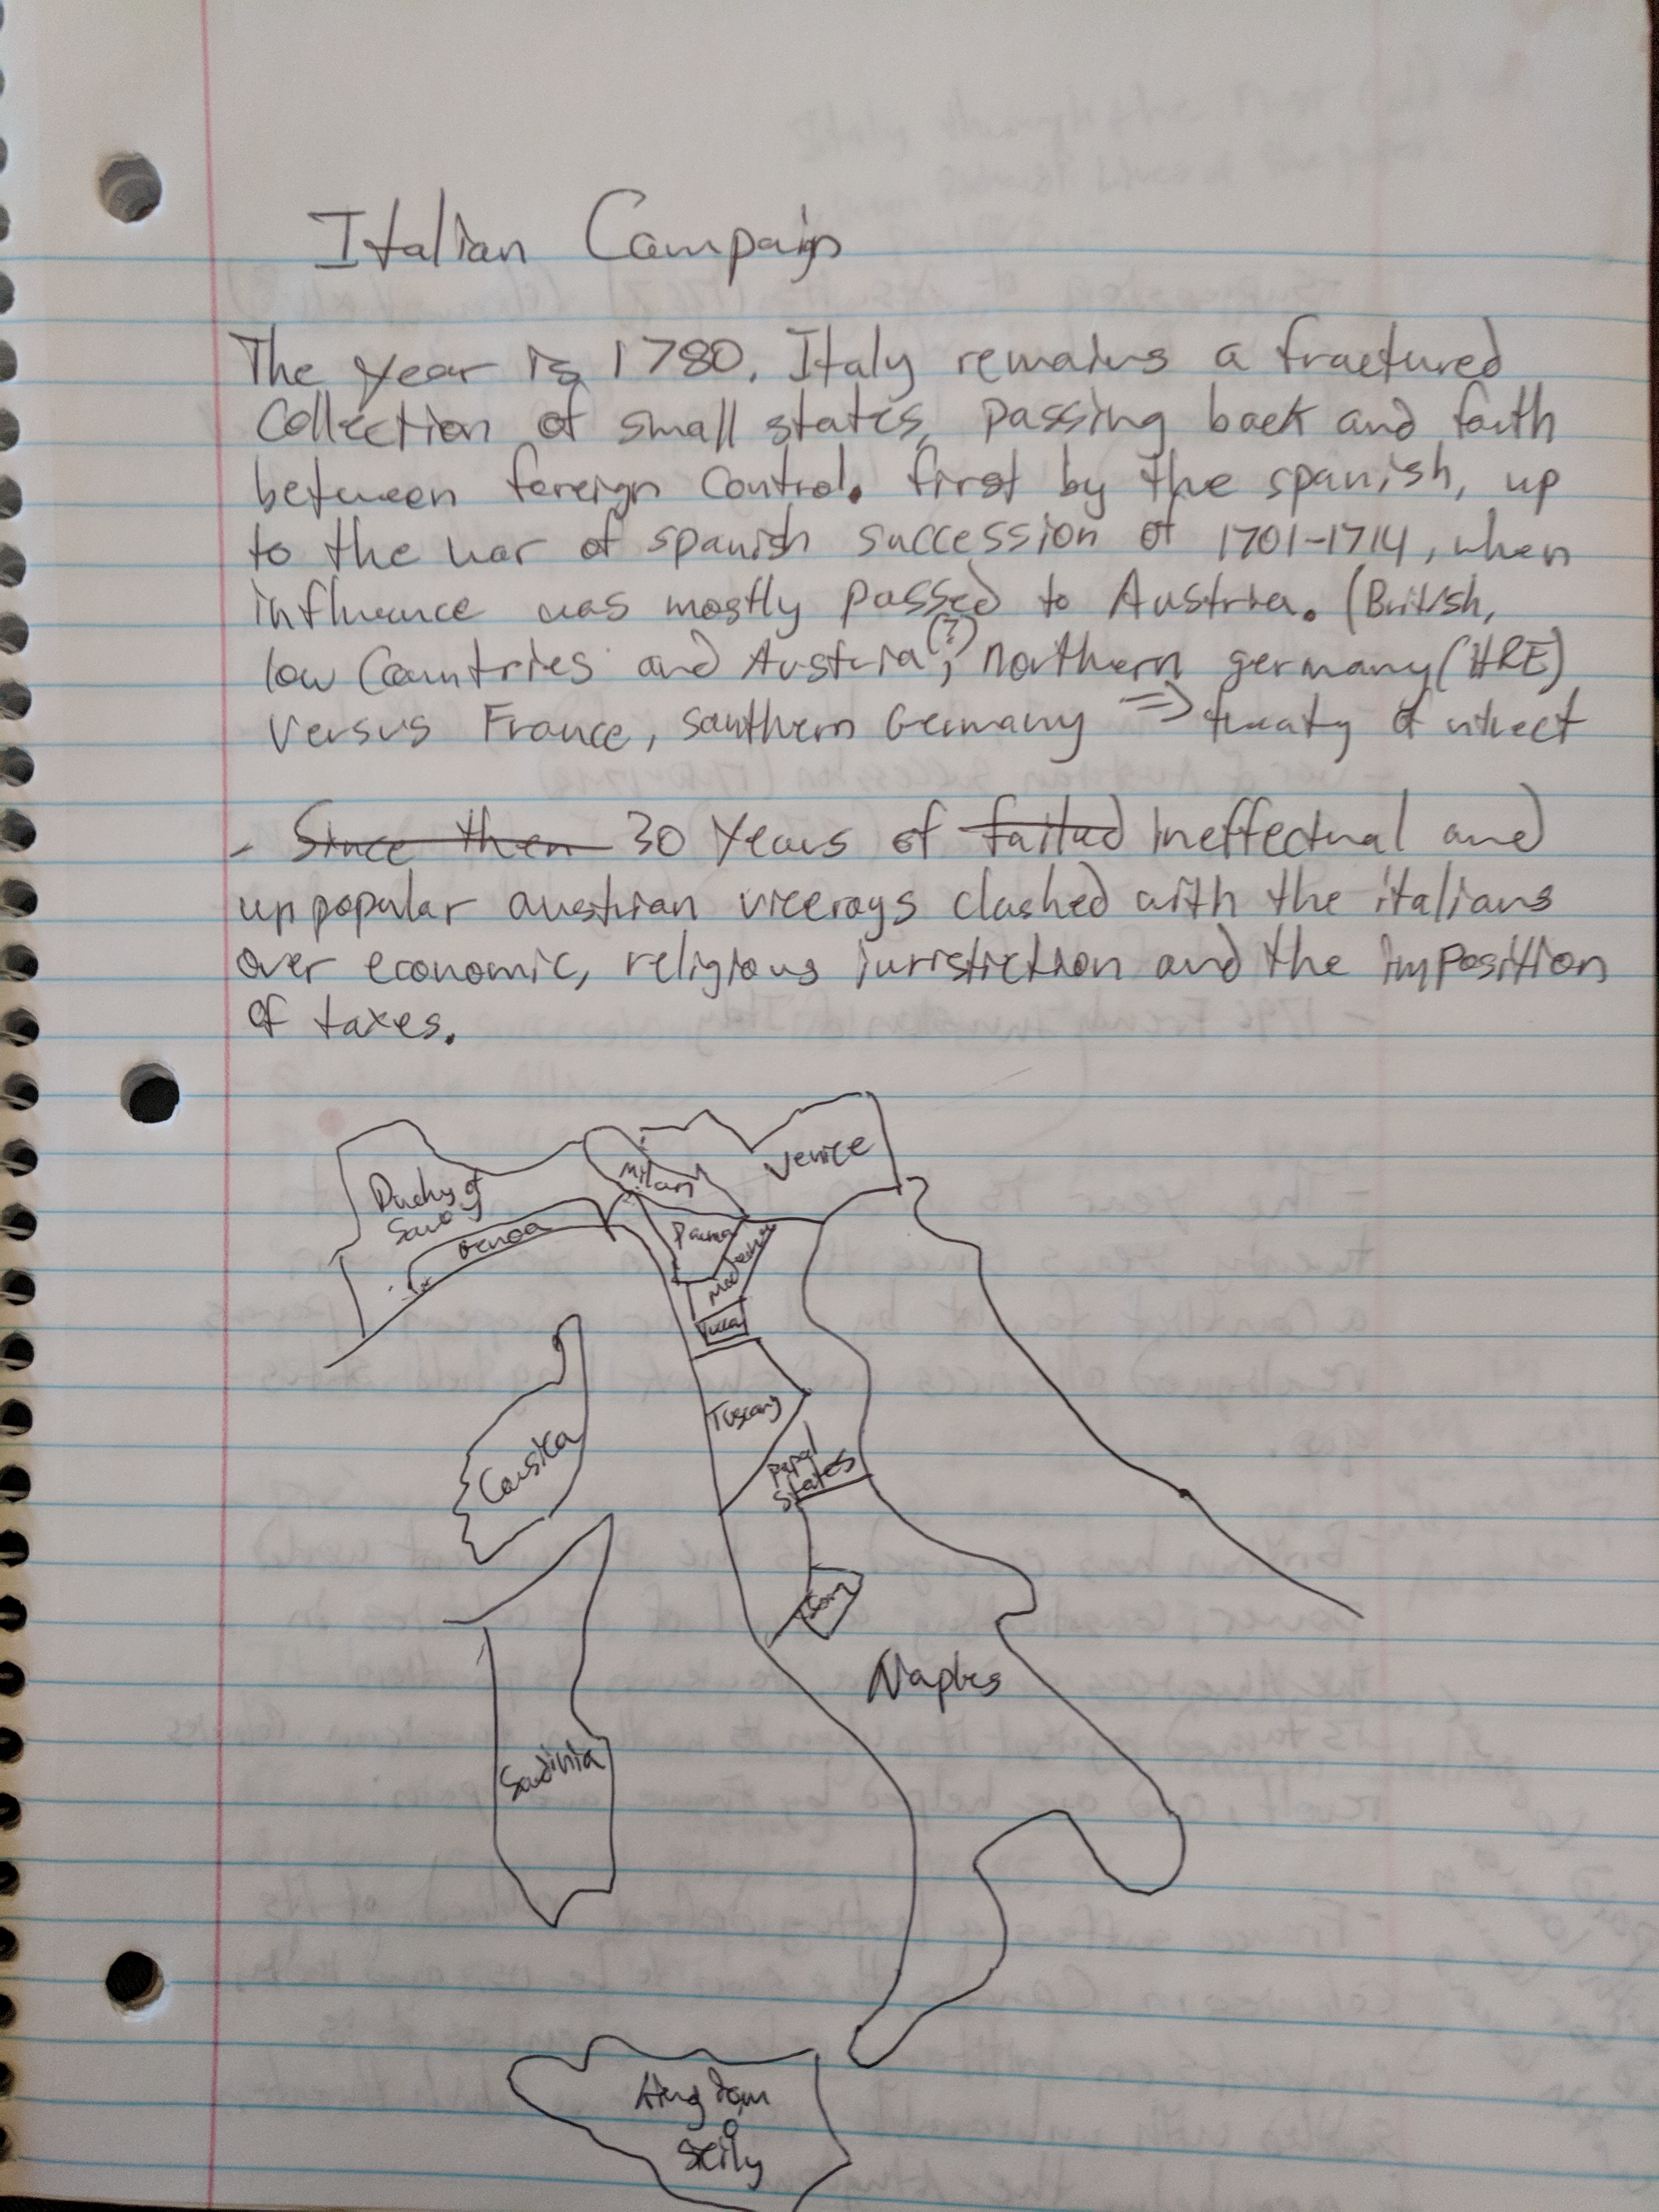 Italian Campaign
The year is 1780. Italy remains a fractured
Collection of small states, passing back and forth
between foreign control. first by the spanish, up
to the war of spanish succession of 1701-1714, when
influence was mostly passed to Austria. (British,
low Countries and Austria(?), northern germany (HRE)
versus France, southern Germany => treaty of utrect
- Since then 30 years of failed ineffectual and
unpopular austrian viceroys clashed with the italians
over economic, religious juristiction and the imposition
of taxes.
Venice
Milan
Duchy of
Savoy
Genoa
Parma
Modena
Lucca
Tuscany
Corsica
Papal
States
Naples
Sardinia
Kingdom
o
Sicily